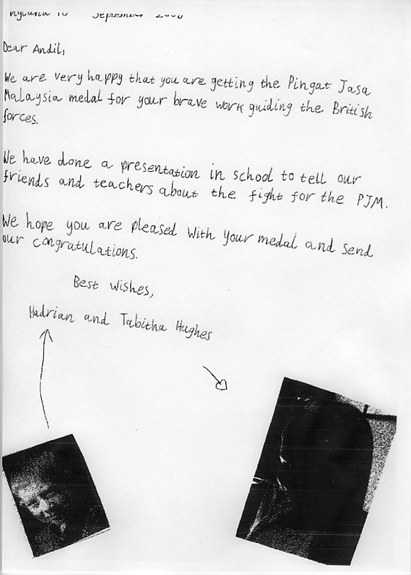 September
Dear Andil,
We are very happy that you are getting the Pingat Jasa
Malaysia medal for your brave work guiding the British
forces.
We have done a presentation in school to tell our
friends and teachers about the fight for the PJM.
We hope you are pleased with your medal and send
our congratulations.
Best Wishes,
Hadrian and Tabitha Hughes